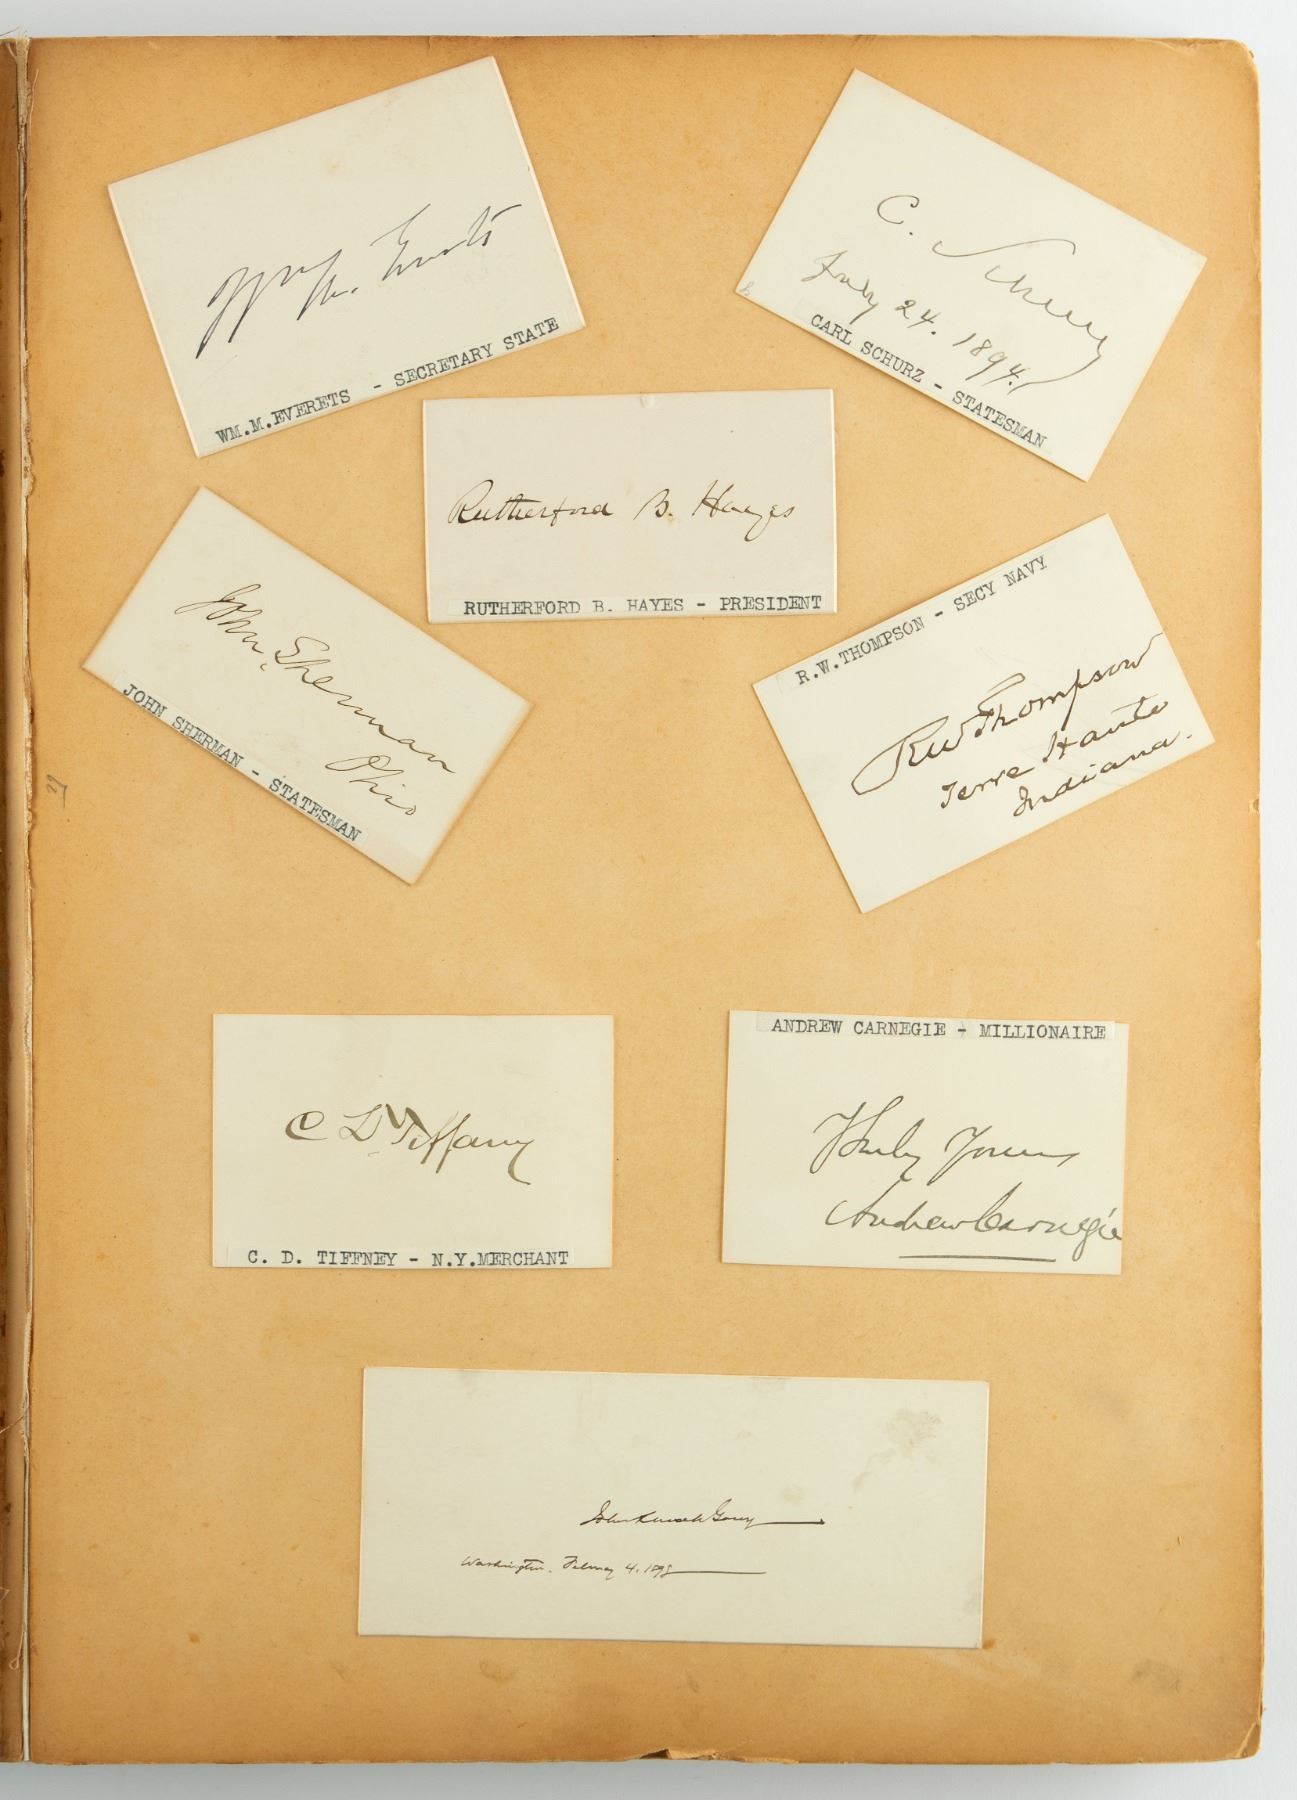 Wm M. Evarts
WM.M.EVERETS - SECRETARY STATE
C. Schurz
July 24. 1894.
CARL SCHURZ - STATESMAN
Rutherford B. Hayes
RUTHERFORD B. HAYES - PRESIDENT
John Sherman
Ohio
JOHN SHERMAN - STATESMAN
R.W.THOMPSON - SECY NAVY
RW Thompson
Terre Haute
Indiana.
C L Tiffany
C. D. TIFFNEY - N.Y.MERCHANT
ANDREW CARNEGIE - MILLIONAIRE
Truly Yours
Andrew Carnegie
John Russell Young
Washington. February 4. 1898